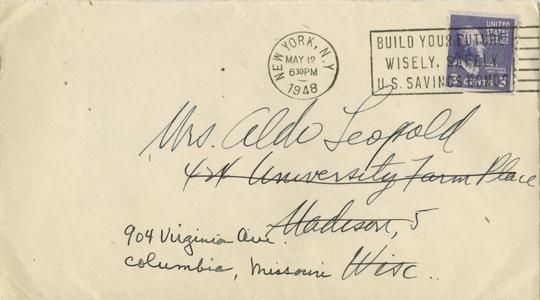 NEW YORK, N.Y.
MAY 12
630PM
1948
BUILD YOUR FUTURE
WISELY, SAFELY
U.S. SAVINGS BONDS
UNITED
STATES
3 CENTS 3
Mrs. Aldo Leopold
424 University Farm Place
Madison, 5
Wisc.
904 Virginia Ave.
Columbia, Missouri